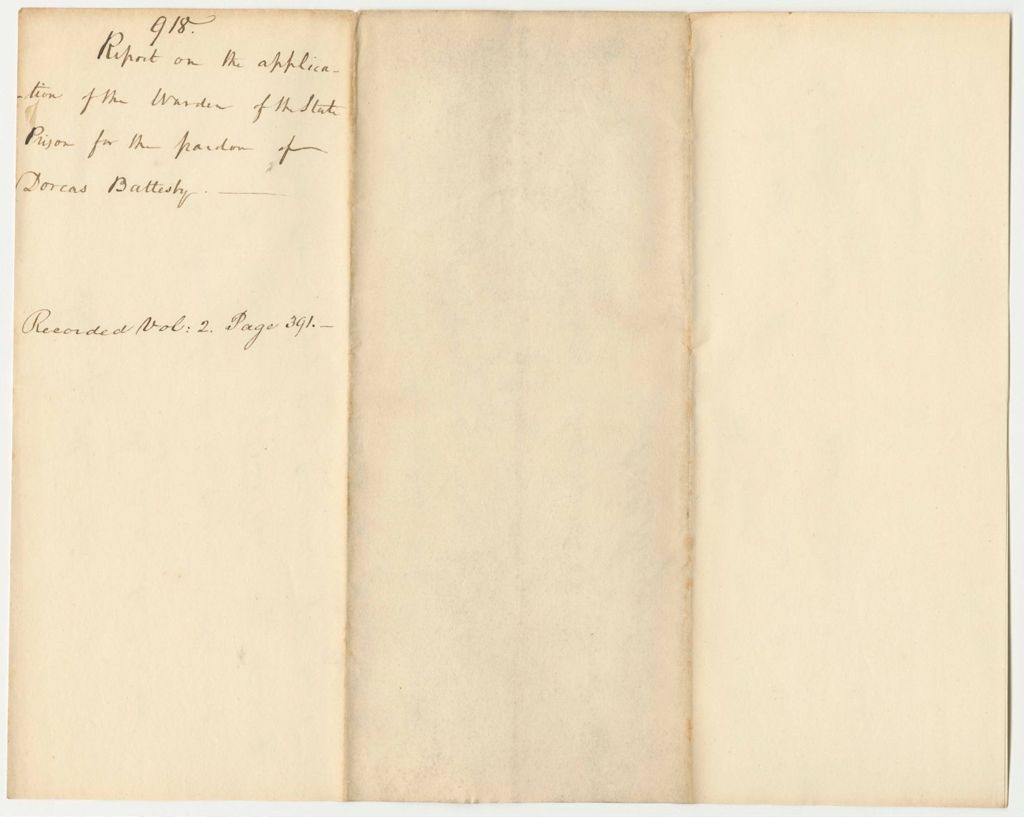 918.
Report on the applica-
-tion of the Warden of the State
Prison for the pardon of
Dorcas Battesby.
Recorded Vol: 2. Page 391.